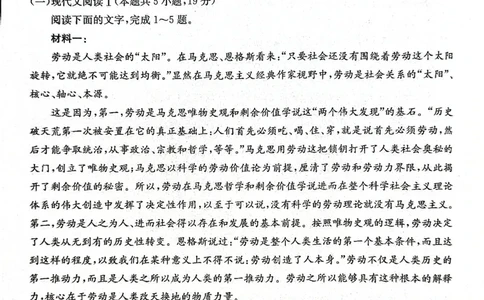 (一)现代文阅读Ⅰ(本题共5小题,19分)
阅读下面的文字,完成1～5题。
材料一:
劳动是人类社会的“太阳”。在马克思、恩格斯看来:“只要社会还没有围绕着劳动这个太阳
旋转,它就绝不可能达到均衡。”显然在马克思主义经典作家视野中,劳动是社会关系的“太阳”、
核心、轴心、本源。
这是因为,第一,劳动是马克思唯物史观和剩余价值学说这“两个伟大发现”的基石。“历史
破天荒第一次被安置在它的真正基础上:人们首先必须吃、喝、住、穿,就是说首先必须劳动,然
后才能争取统治,从事政治、宗教和哲学,等等。”马克思用劳动这把锁钥打开了人类社会奥秘的
大门,创立了唯物史观;马克思以科学的劳动价值论为前提,厘清了劳动和劳动力界限,从此揭
开了剩余价值的秘密。所以,劳动在马克思哲学和剩余价值学说进而在整个科学社会主义理论
体系的伟大创造中发挥了决定性作用,以至于可以说,没有科学的劳动理论就没有马克思主义。
第二,劳动是人之为人、进而社会得以存在和发展的基本前提。按照唯物史观的逻辑,劳动决定
了人类从无到有的历史性转变。恩格斯说过:“劳动是整个人类生活的第一个基本条件,而且达
到这样的程度,以致我们在某种意义上不得不说:劳动创造了人本身。”劳动不仅是人类历史的
第一推动力,而且是人类之所以成为人类的第一推动力。劳动之所以能够具有这种根本的解释
力,核心在于劳动是人类改天换地的物质力量。